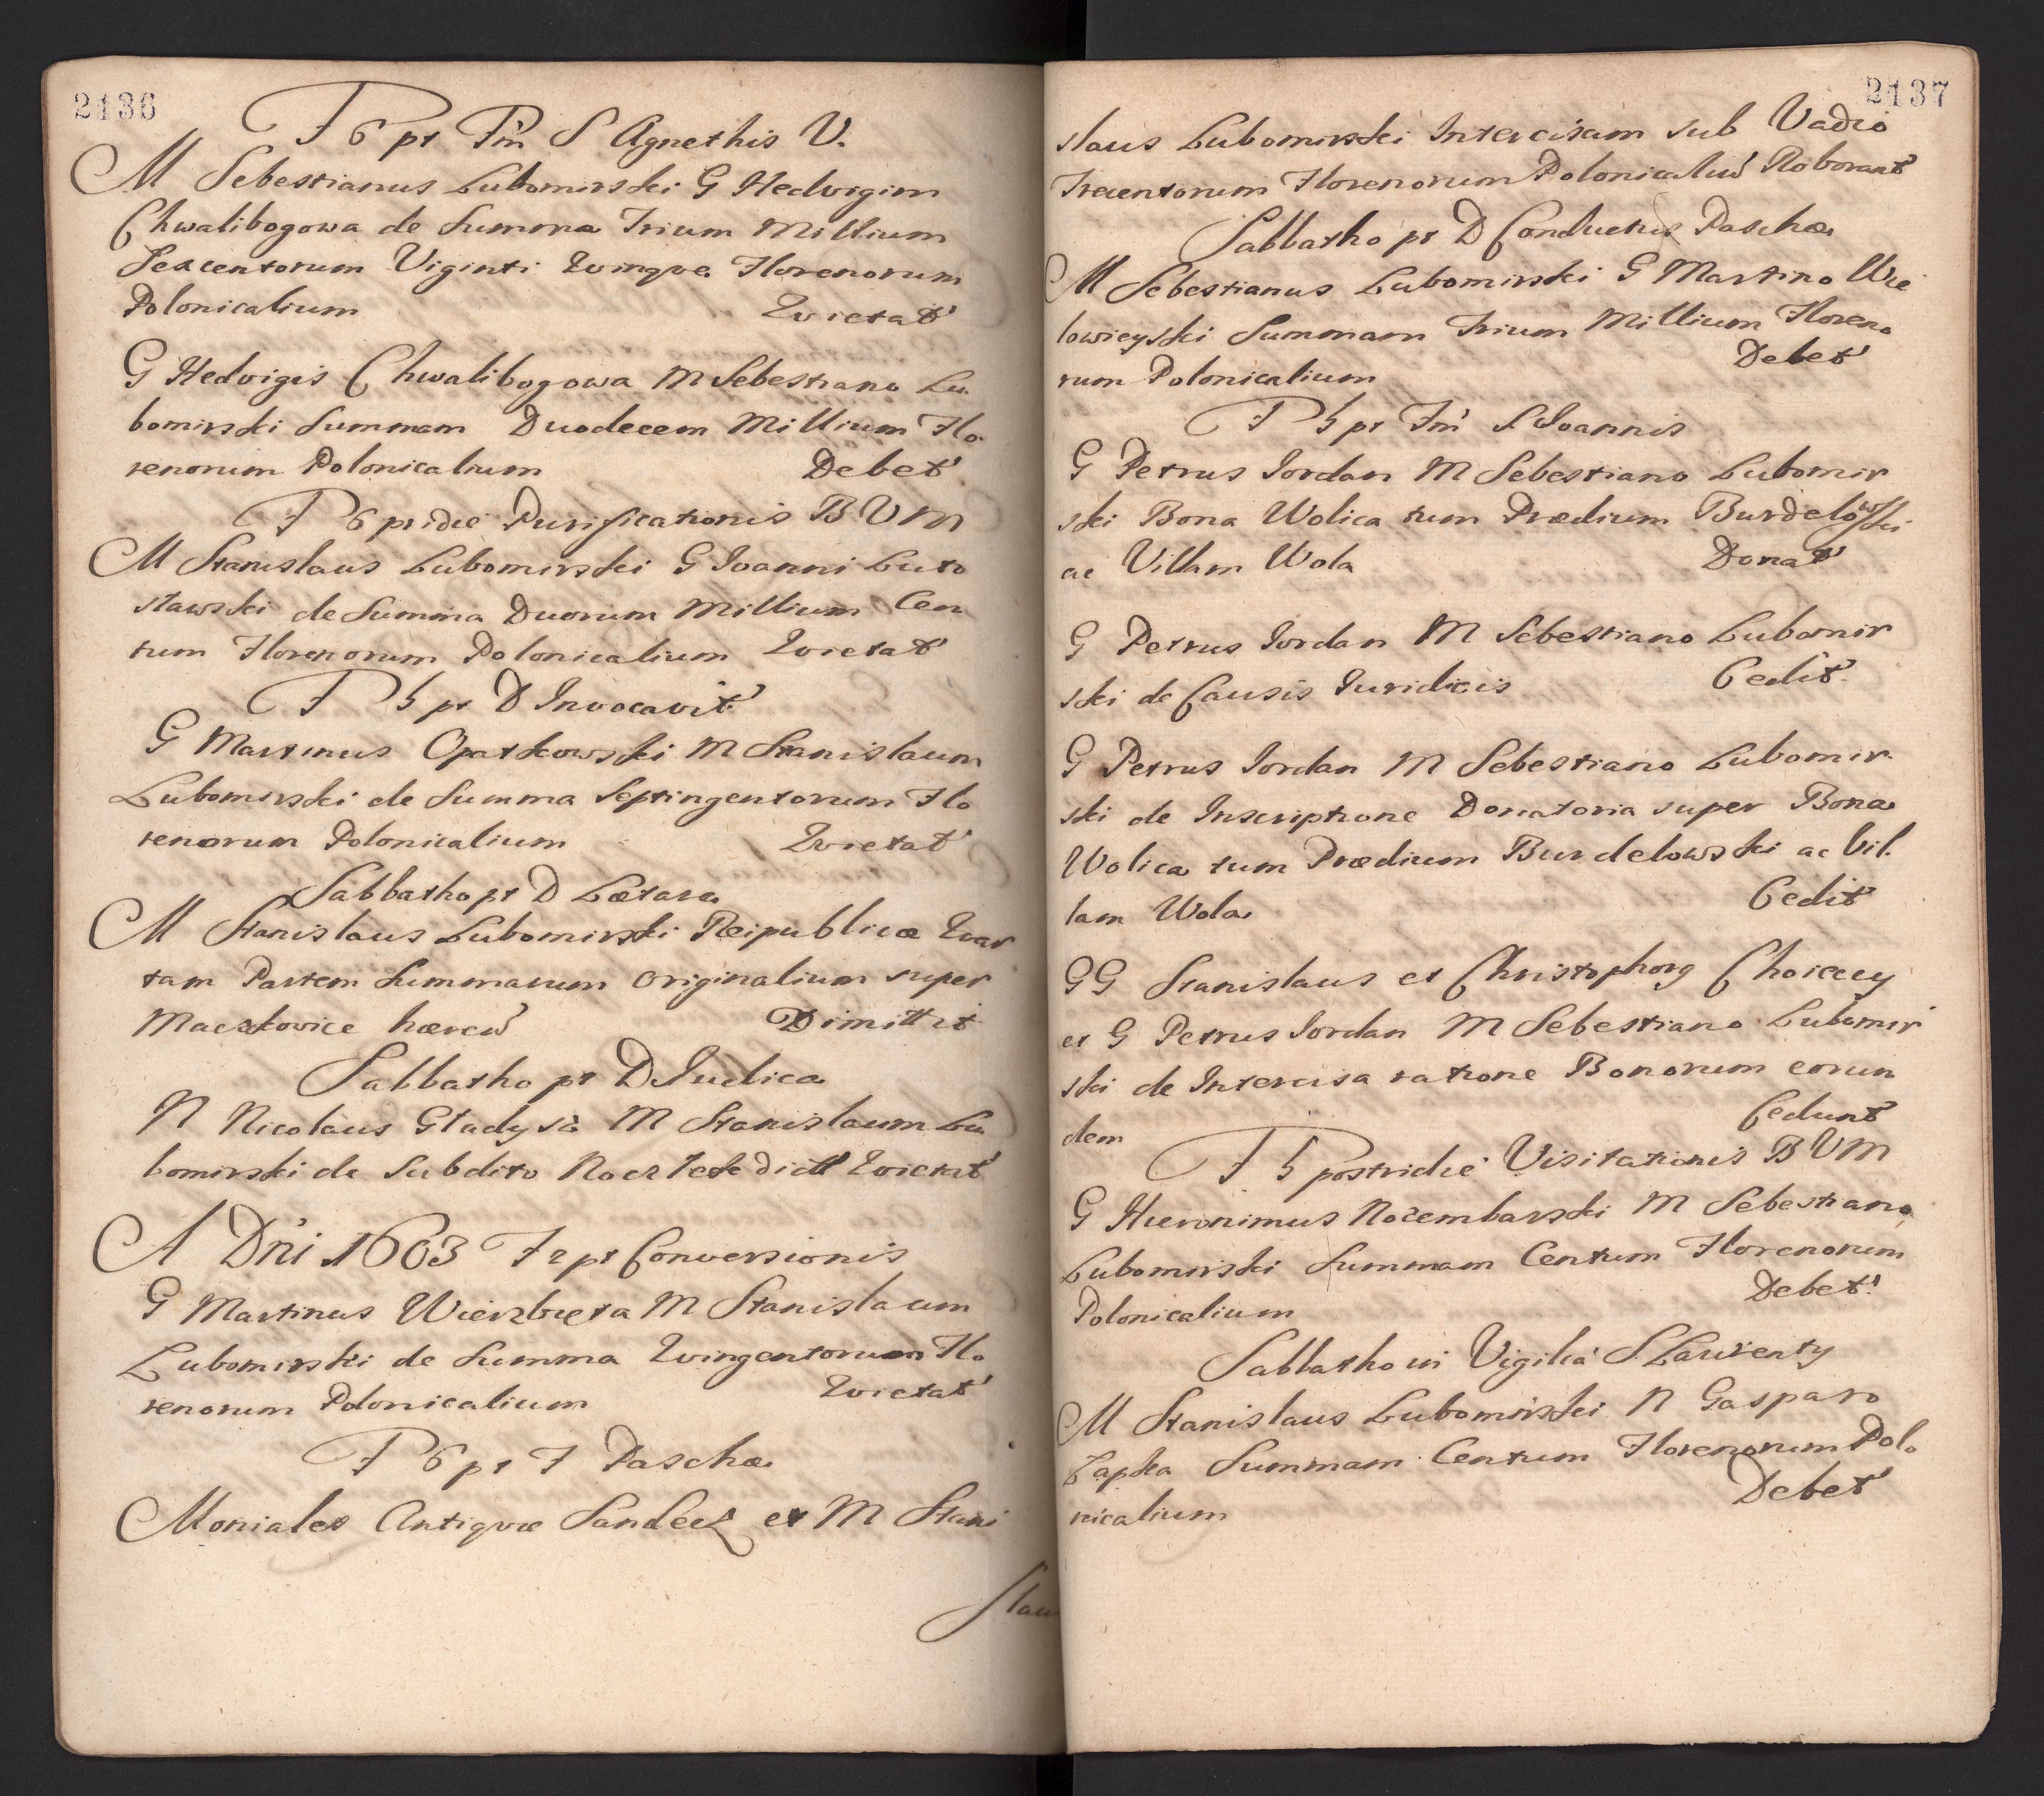 2136
F 6 pt Fm S Agnethis V.
M Sebestianus Lubomirski G Hedvigim
Chwalibogowa de Summa Trium Millium
Sexcentorum Viginti Qvinqve Florenorum
Polonicalium Qvietat
G Hedvigis Chwalibogowa M Sebestiano Lu
bomirski Summam Duodecem Millium Flo
renorum Polonicalium Debet
F 6 pridie Purificationis B V M
M Stanislaus Lubomirski G Joanni Luto
sławski de Summa Duorum Millium Cen
tum Florenorum Polonicalium Qvietat
F 5 pt D Invocavit
G Martinus Opatkowski M Stanislaum
Lubomirski de Summa Septingentorum Flo
renorum Polonicalium Qvietat
Sabbatho pt D Lætare
M Stanislaus Lubomirski Reipublicæ Qvar
tam Partem Summarum Originalium super
hæren Dimittit
Sabbatho pt D Judica
N Nicolaus Gładysz M Stanislaum Lu
bomirski de Subdito Qvietat
A Dni 1603 F 2 pt Conversionis
G Martinus Wierzbięta M Stanislaum
Lubomirski de Summa Qvingentorum Flo
renorum Polonicalium Qvietat
F 6 pt F Paschæ
Moniales Antiqvæ Sandecz et M Stani
slaus
2137
slaus Lubomirski Intercisam sub Vadio
Trecentorum Florenorum Polonicaliu Roborant
Sabbatho pt D Conductus Paschæ
M Sebestianus Lubomirski G Martino Wie
lowieyski Summam Trium Millium Floreno
rum Polonicalium Debet
F 5 pt Fm S Joannis
G Petrus Jordan M Sebestiano Lubomir
ski Bona Wolica tum Prædium Burdelowski
ac Villam Wola Donat
G Petrus Jordan M Sebestiano Lubomir
ski de Causis Juridicis Cedit
G Petrus Jordan M Sebestiano Lubomir
ski de Inscriptione Donatoria super Bona
Wolica tum Prædium Burdelowski ac Vil
lam Wola Cedit
GG Stanislaus et Christophorg Choiecey
et G Petrus Jordan M Sebestiano Lubomir
ski de Intercisa ratione Bonorum eorun
dem Cedunt
F 5 postridie Visitationis B V M
G Hieronimus Rożembarski M Sebestiano
Lubomirski Summam Centum Florenorum
Polonicalium Debet
Sabbatho in Vigilia S Laurenty
M Stanislaus Lubomirski N Gasparo
Summam Centum Florenorum Polo
nicalium Debet